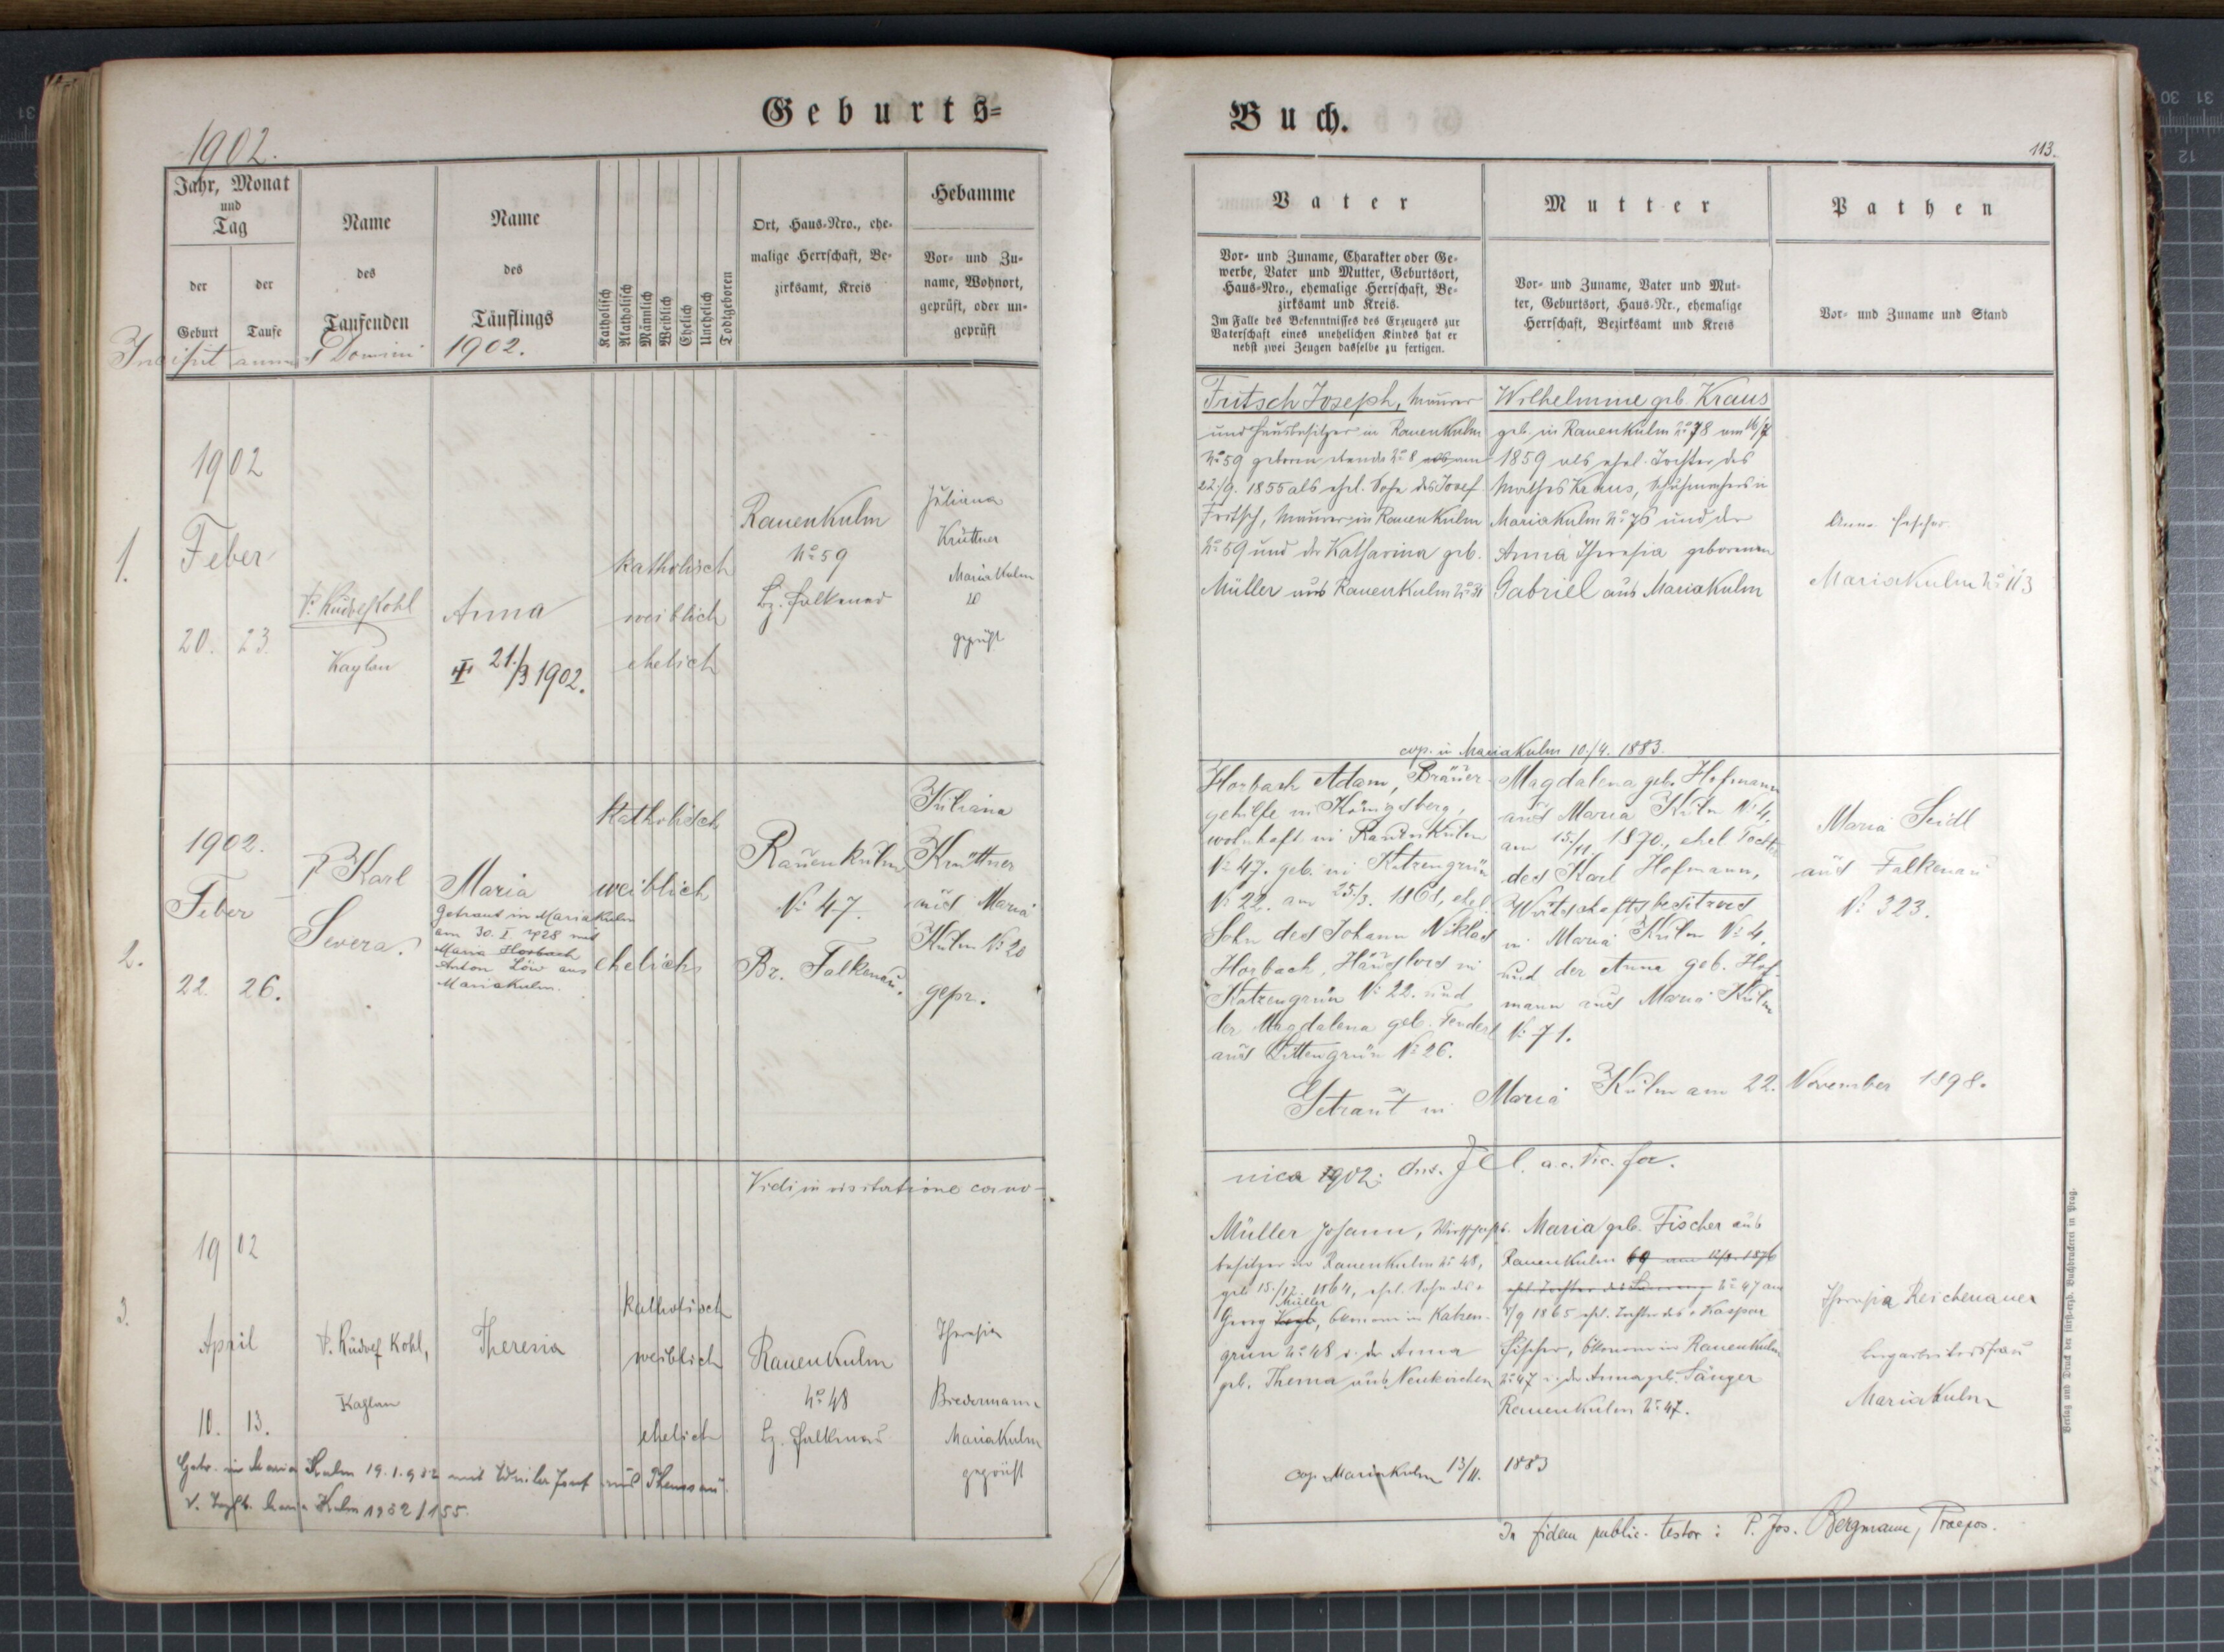 Geburts=
1902.
Jahr, Monat
und
Tag
der
Geburt
der
Taufe
Name
des
Taufenden
Name
des
Täuflings
Katholisch
Akatholisch
Männlich
Weiblich
Ehelich
Unehelich
Todtgeboren
Ort, Haus-Nro., ehe-
malige Herrschaft, Be-
zirksamt, Kreis
Hebamme
Vor- und Zu-
name, Wohnort,
geprüft, oder un-
geprüft
Incipit annus Domini 1902.
1.
1902
Feber
20. 23.
P. Rudolf Kohl
Kaplan
Anna
21./3 1902.
katholisch
weiblich
ehelich
Rauenkulm
No 59
Bz. Falkenau
Juliana
Krüttner
Maria Kulm
20
geprüft
2.
1902.
Feber
22. 26.
P. Karl
Swera.
Maria
Getraut in Mariakulm
am 30. I. 1928 mit
Maria Horbach
Anton Löw aus
Mariakulm.
Katholisch
weiblich
ehelich
Rauenkulm
No 47.
Bz. Falkenau.
Juliana
Krüttner
aus Maria
Kulm No 20
gepr.
3.
1902
April
10. 13.
P. Rudolf Kohl,
Kaplan
Theresia
Katholisch
weiblich
ehelich
Vidi in visitatione cano-
Rauenkulm
No 48
Bz. Falkenau
Theresia
Biedermann
Mariakulm
geprüft
Getr. in Maria Kulm 19.1.932 mit Josef aus
Maria Kulm 1932/155.
Buch.
113.
Vater
Vor- und Zuname, Charakter oder Ge-
werbe, Vater und Mutter, Geburtsort,
Haus-Nro., ehemalige Herrschaft, Be-
zirksamt und Kreis.
Im Falle des Bekenntnisses des Erzeugers zur
Vaterschaft eines unehelichen Kindes hat er
nebst zwei Zeugen dasselbe zu fertigen.
Mutter
Vor- und Zuname, Vater und Mut-
ter, Geburtsort, Haus-Nr., ehemalige
Herrschaft, Bezirksamt und Kreis
Pathen
Vor- und Zuname und Stand
Fritsch Joseph, Maurer
und Hausbesitzer in Rauenkulm
No 59 geboren No 8 am
22./9. 1855 als ehel. Sohn des Josef
Fritsch, Maurer in Rauenkulm
No 59 und der Katharina geb.
Müller aus Rauenkulm No 31
Wilhelmine geb. Kraus
geb. in Rauenkulm No 78 am 16/7
1859 als ehel. Tochter des
Mathes Kraus, Schuhmachers in
Mariakulm No 76 und der
Anna Theresia geborenen
Gabriel aus Mariakulm
Anna Fischer
Mariakulm No 113
cop. in Mariakulm 10./4. 1883.
Horbach Adam, Bräuer-
gehilfe in Königsberg,
wohnhaft in Rauenkulm
No 47. geb. in Katzengrün
No 22. am 25./3. 1868, ehel.
Sohn des Johann Niklas
Horbach, Häuslers in
Katzengrün No 22. und
der Magdalena geb. Fenderl
aus Littengrün No 26.
Magdalena geb. Hofmann
aus Maria Kulm No 4,
am 15./11. 1870., ehel Tochter
des Karl Hofmann,
Wirtschaftsbesitzers
in Maria Kulm No 4,
und der Anna geb. Hof-
mann aus Maria Kulm
No 71.
Maria Seidl
aus Falkenau
No 323.
Getraut in Maria Kulm am 22. November 1898.
nica 1902:
Müller Johann, Wirtschafts-
besitzer in Rauenkulm No 48,
geb. 15./12. 1864, ehel. Sohn des +
Georg Müller, Ökonom in Katzen-
grün No 48 u. der Anna
geb. Thema aus Neukirchen
Maria geb. Fischer aus
Rauenkulm 69 am 12/2. 1876
ehel. Tochter des No 47 am
1/9 1865 ehel. Tochter des + Kaspar
Fischer, Ökonom in Rauenkulm
No 47 u. der Anna geb. Sänger
Rauenkulm No 47.
Theresia Reichenauer
Bergarbeitersfrau
Mariakulm
cop. Mariakulm 13/11. 1883
In fidem public. testor: P. Jos. Bergmann, Praepos.
Verlag und Druck der fürst-erzb. Buchdruckerei in Prag.